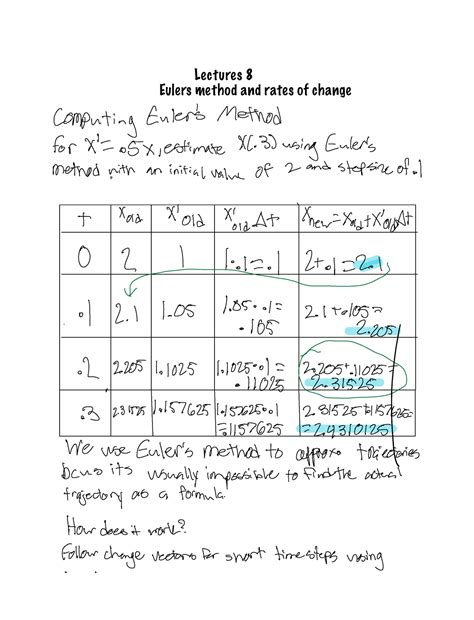 Lectures 8
Eulers method and rates of change
Computing Euler's Method
for x' = .5x, estimate x(.3) using Euler's
method with an initial value of 2 and stepsize of .1
t Xold X'old X'old Δt Xnew = Xold + X'old Δt
0 2 1 1·.1 = .1 2 + .1 = 2.1
.1 2.1 1.05 1.05 · .1 = .105 2.1 + .105 = 2.205
.2 2.205 1.1025 1.1025 · .1 = .11025 2.205 + .11025 = 2.31525
.3 2.31525 1.157625 1.157625 · .1 = .1157625 2.31525 + .1157625 = 2.4310125
We use Euler's method to approx trajectories
bcus its usually impossible to find the actual
trajectory as a formula
How does it work?
Follow change vectors for short timesteps using